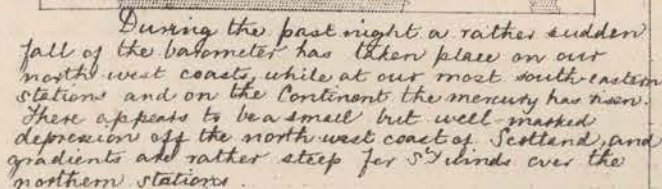 During the past night a rather sudden
fall of the barometer has taken place on our
north west coasts, while at our most south-eastern
stations and on the Continent the mercury has risen.
There appears to be a small but well-marked
depression off the north west coast of Scotland, and
gradients are rather steep for Sly winds over the
northern stations.